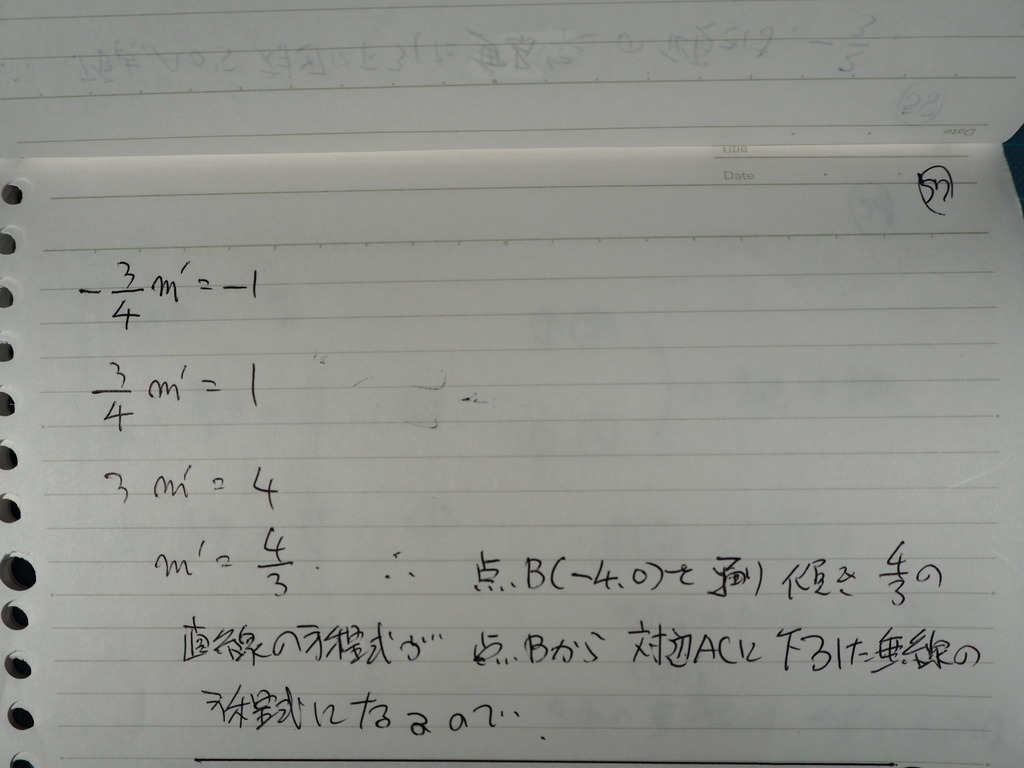 Title
Date
57
-3/4 m' = -1
3/4 m' = 1
3 m' = 4
m' = 4/3. ∴ 点B(-4.0)を通り 傾き 4/3 の
直線の方程式が 点Bから 対辺ACに 下ろした垂線の
方程式になるので..